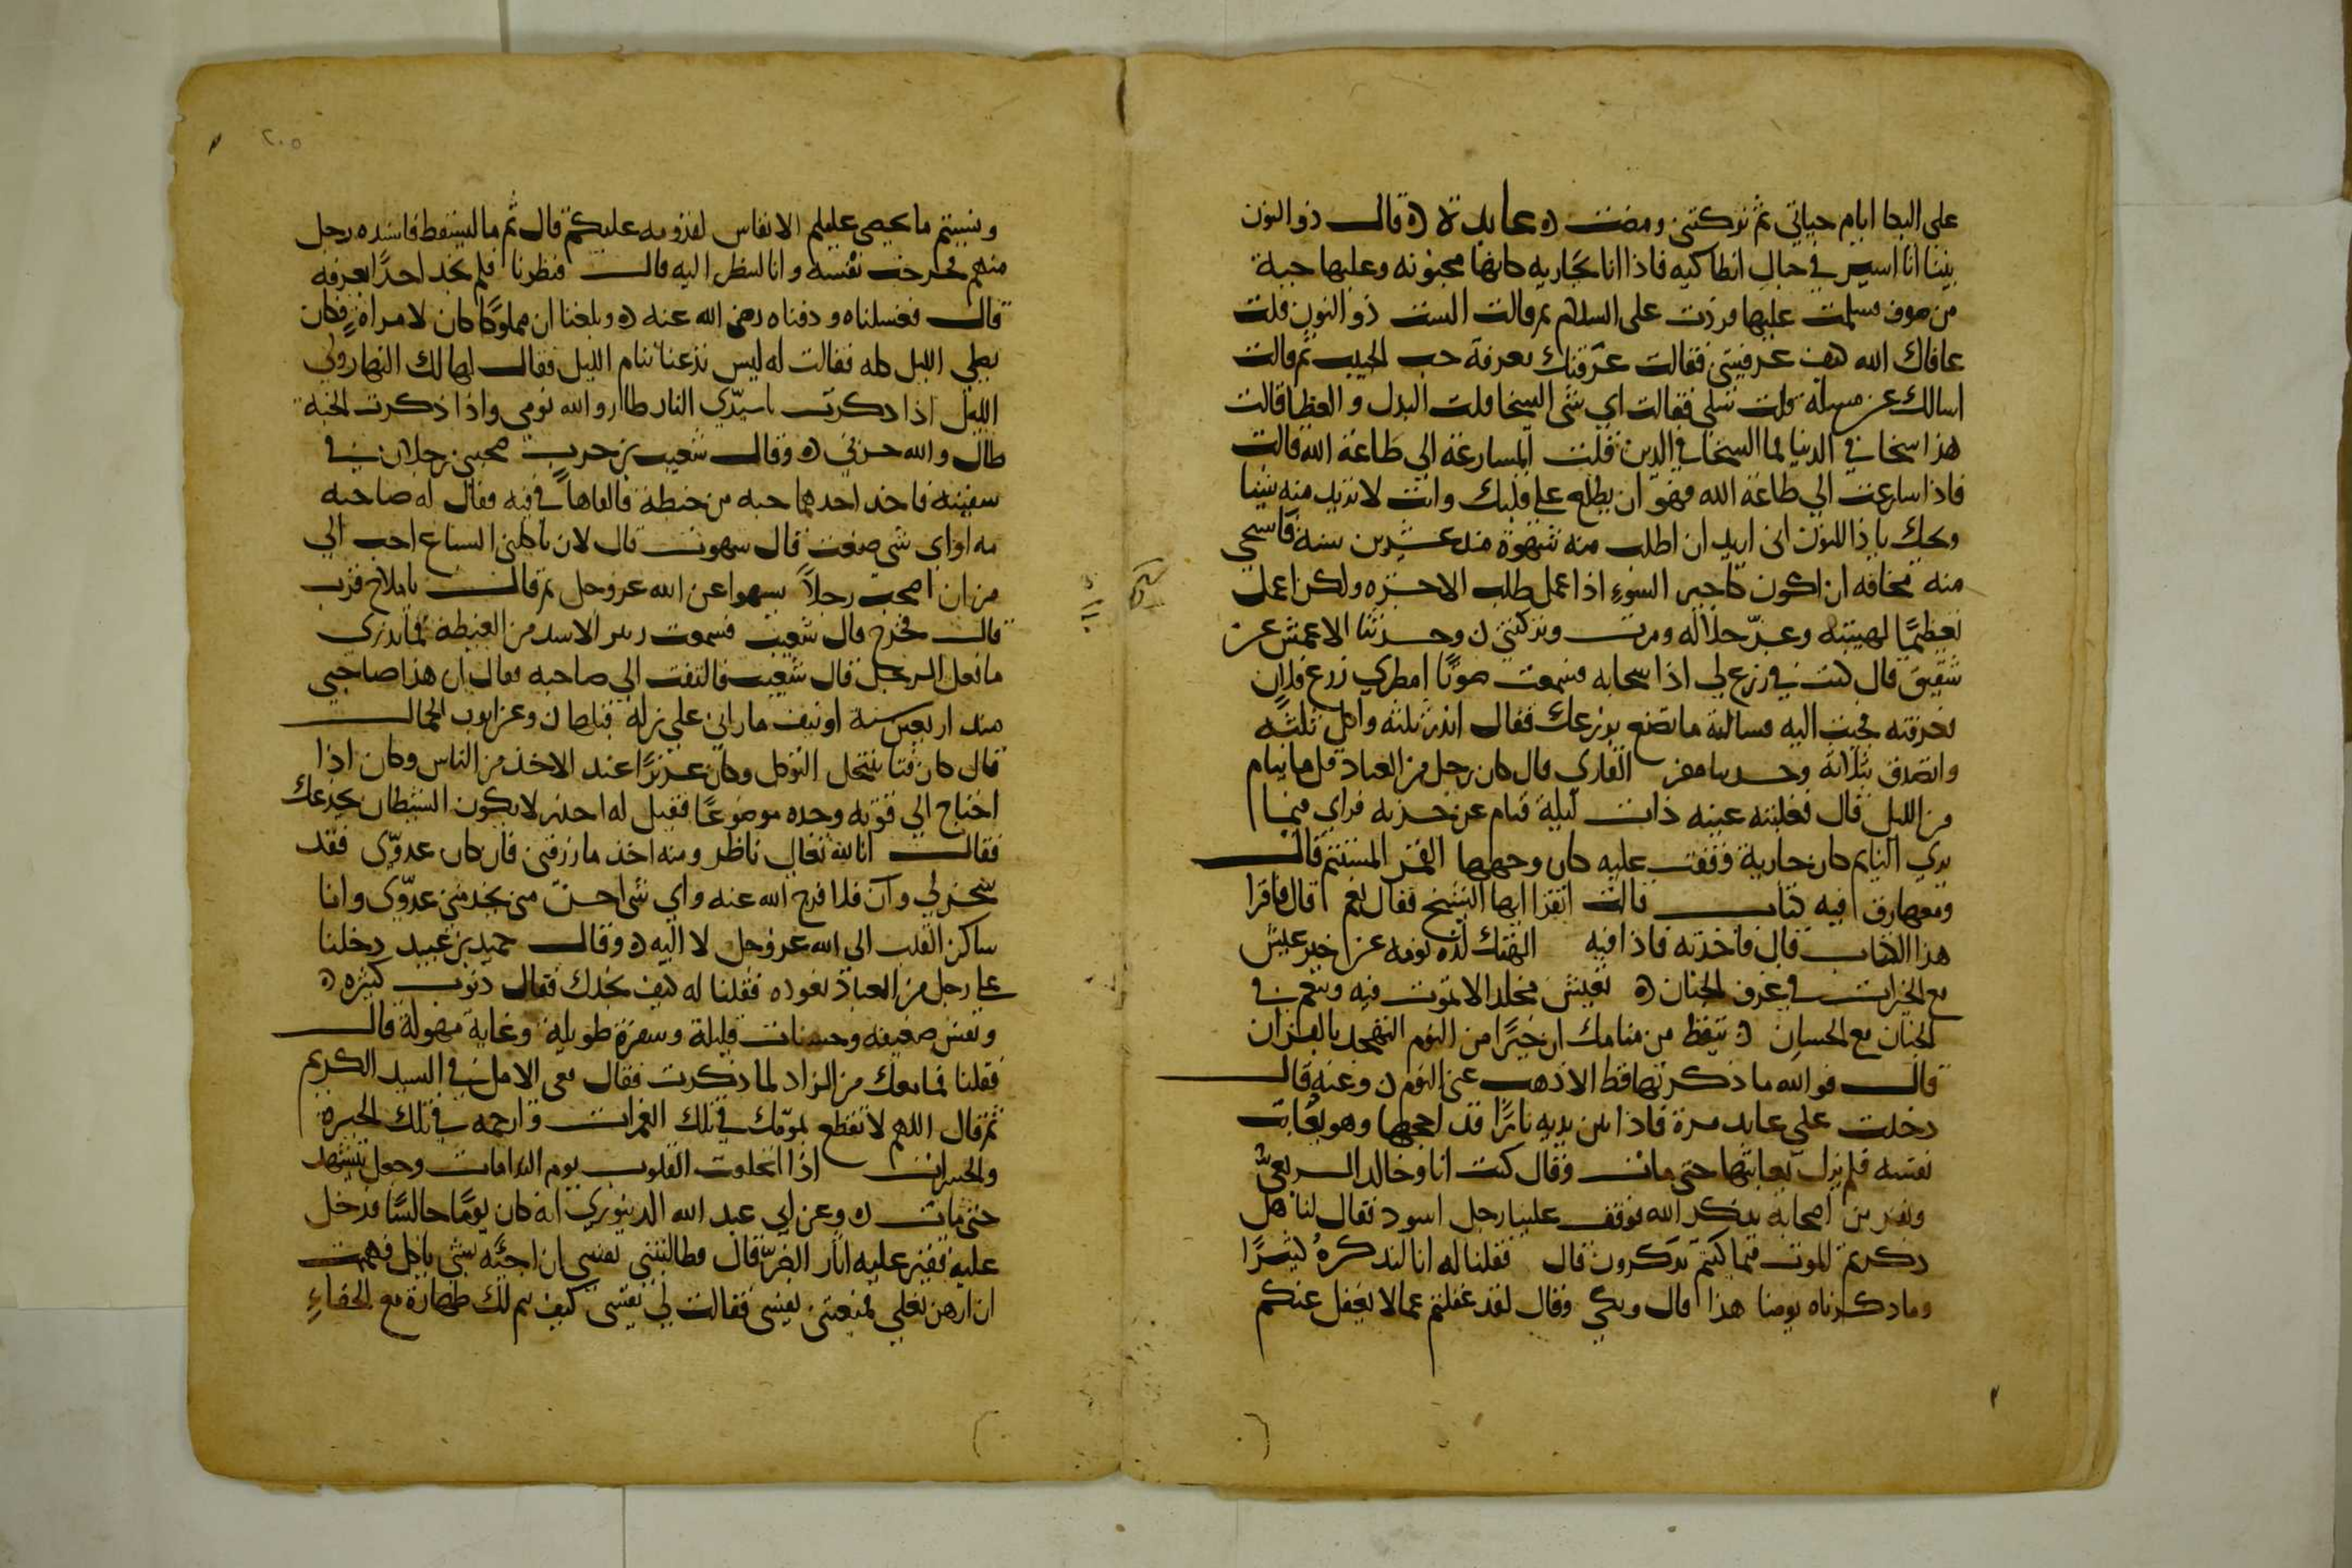 على البكا ايام حياتي ثم تركتني ومضت ه عابدة ه قال ذو النون
بينا انا اسير في جبال انطاكيه فاذا انا بجاريه كانها مجنونه وعليها جبة
من صوف فسلمت عليها فردت على السلام ثم قالت الست ذو النون قلت
عافاك الله كيف عرفتيني فقالت عرفتك بمعرفة حب الحبيب ثم قالت
اسالك عن مسلة قلت سلي فقالت اي شي السخا قلت البذل والعطا قالت
هذا سخا في الدنيا فما السخا في الدين قلت المسارعة الي طاعة الله قالت
فاذا سارعت الي طاعة الله فهو ان يطلع على قلبك وانت لا تريد منه شيا
ويحك ياذا النون اني اريد ان اطلب منه شهوة منذ عشرين سنة فاستحي
منه مخافة ان اكون كاجير السوء اذا عمل طلب الاجره ولكن اعمل
تعظيمًا لهيبته وعز جلاله ومرت وتركتني ن وحدثنا الاعمش عن
شقيق قال كنت في زرع لي اذا سحابه فسمعت صوتًا امطري زرع فلان
فعرفته فجيت اليه فسالته ما تصنع بزرعك فقال ابذر ثلثه واكل ثلثه
واتصدق بثلثه وحدثنا القاري قال كان رجل من العباد قل ما ينام
من الليل قال فغلبته عينه ذات ليلة فنام عن حزبه فراي فيما
يري النايم كان جارية وقفت عليه كان وجهها القمر المستتم قال
ومعها رق فيه كتاب قالت اتقرا ايها الشيخ فقال نعم قال فاقرا
هذا الكتاب قال فاخذته فاذا فيه الهتك لذه نومه عن خير عيش
مع الخيرات في غرف الجنان ه تعيش مخلدا لا تموت فيه وتنعم في
الجنان مع الحسان ه تيقظ من منامك ان خيرًا من النوم التهجد بالقران
قال فوالله ما ذكرتها قط الا ذهب عني النوم ن وعنه قال
دخلت على عابد مرة فاذا بين يديه نارًا قد اججها وهو يعاتب
نفسه فلم يزل يعاتبها حتى مات وقال كنت انا وخالد الربعي
ونفر من اصحابه نذكر الله فوقف علينا رجل اسود فقال لنا هل
ذكرتم الموت فيما كنتم تذكرون قال فقلنا له انا لنذكره كثيرًا
وما ذكرناه يومنا هذا قال وبكي وقال لقد غفلتم عما لا يغفل عنكم
٢٠٥
ونسيتم ما يحصي عليكم الانفاس لقدومه عليكم قال ثم مال فسقط فاسنده رجل
منهم فخرجت نفسه وانا لننظر اليه قال فنظرنا فلم نجد احدًا يعرفه
قال فغسلناه ودفناه رضي الله عنه ه وبلغنا ان مملوكًا كان لامراة فكان
يصلي الليل كله فقالت له ليس تدعنا ننام الليل فقال لها لك النهار ولي
الليل اذا ذكرت يا سيدي النار طار والله نومي واذا ذكرت الجنة
طال والله حزني ه وقال شعيب بن حرب صحبني رجلان في
سفينه فاخذ احدهما حبه من حنطة فالقاها في فيه فقال له صاحبه
مه اواي شي صنعت قال سهوت قال لان تاكلني السباع احب الي
من ان اصحب رجلاً يسهوا عن الله عز وجل ثم قال يا ملاح قرب
قال فخرج قال شعيب فسمعت زير الاسد من الغيطة فما ندري
ما فعل الرجل قال شعيب فالتفت الي صاحبه فقال ان هذا صاحبي
منذ اربعين سنة او نيف ما راني علي زلة قبلها ن وعن ايوب الحمال
قال كان فتا ينتحل التوكل وكان عزيزًا عند الاخذ من الناس وكان اذا
احتاج الي قوته وجده موضوعًا فقيل له احذر لا يكون الشيطان يخدعك
فقال انا لله تعالى ناظر ومنه اخذ ما رزقني فان كان عدوّي فقد
سخر لي وان فلا فرج الله عنه واي شي احسن مني يخدمني عدوّي وانا
ساكن القلب الي الله عز وجل لا اليه ه وقال حميد بن عبيد دخلنا
على رجل من العباد نعوده فقلنا له كيف نجدك فقال ذنوب كثيره ه
ونفس ضعيفه وحسنات قليلة وسفرة طويله وغاية مهولة قال
فقلنا فما معك من الزاد لما ذكرت فقال معي الامل في السيد الكريم
ثم قال اللهم لا تقطع بمؤمّلك في تلك الغمرات وارحمه في تلك الحيرة
والحسرات اذا انخلعت القلوب يوم الندامات وجعل يتشهد
حتى مات ه وعن ابي عبد الله الدينوري انه كان يومًا جالسًا فدخل
عليه فقير عليه اثار الضرّ قال فطالبتني نفسي ان اجئه بشي ياكل فهممت
ان ارهن نعلي فمنعتني نفسي فقالت لي نفسي كيف تم لك طهارة مع الحفاء